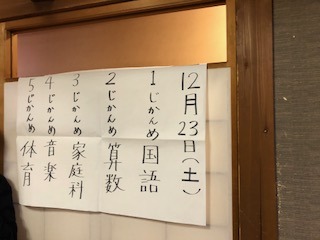 12月23日(土)
1じかんめ 国語
2じかんめ 算数
3じかんめ 家庭科
4じかんめ 音楽
5じかんめ 体育